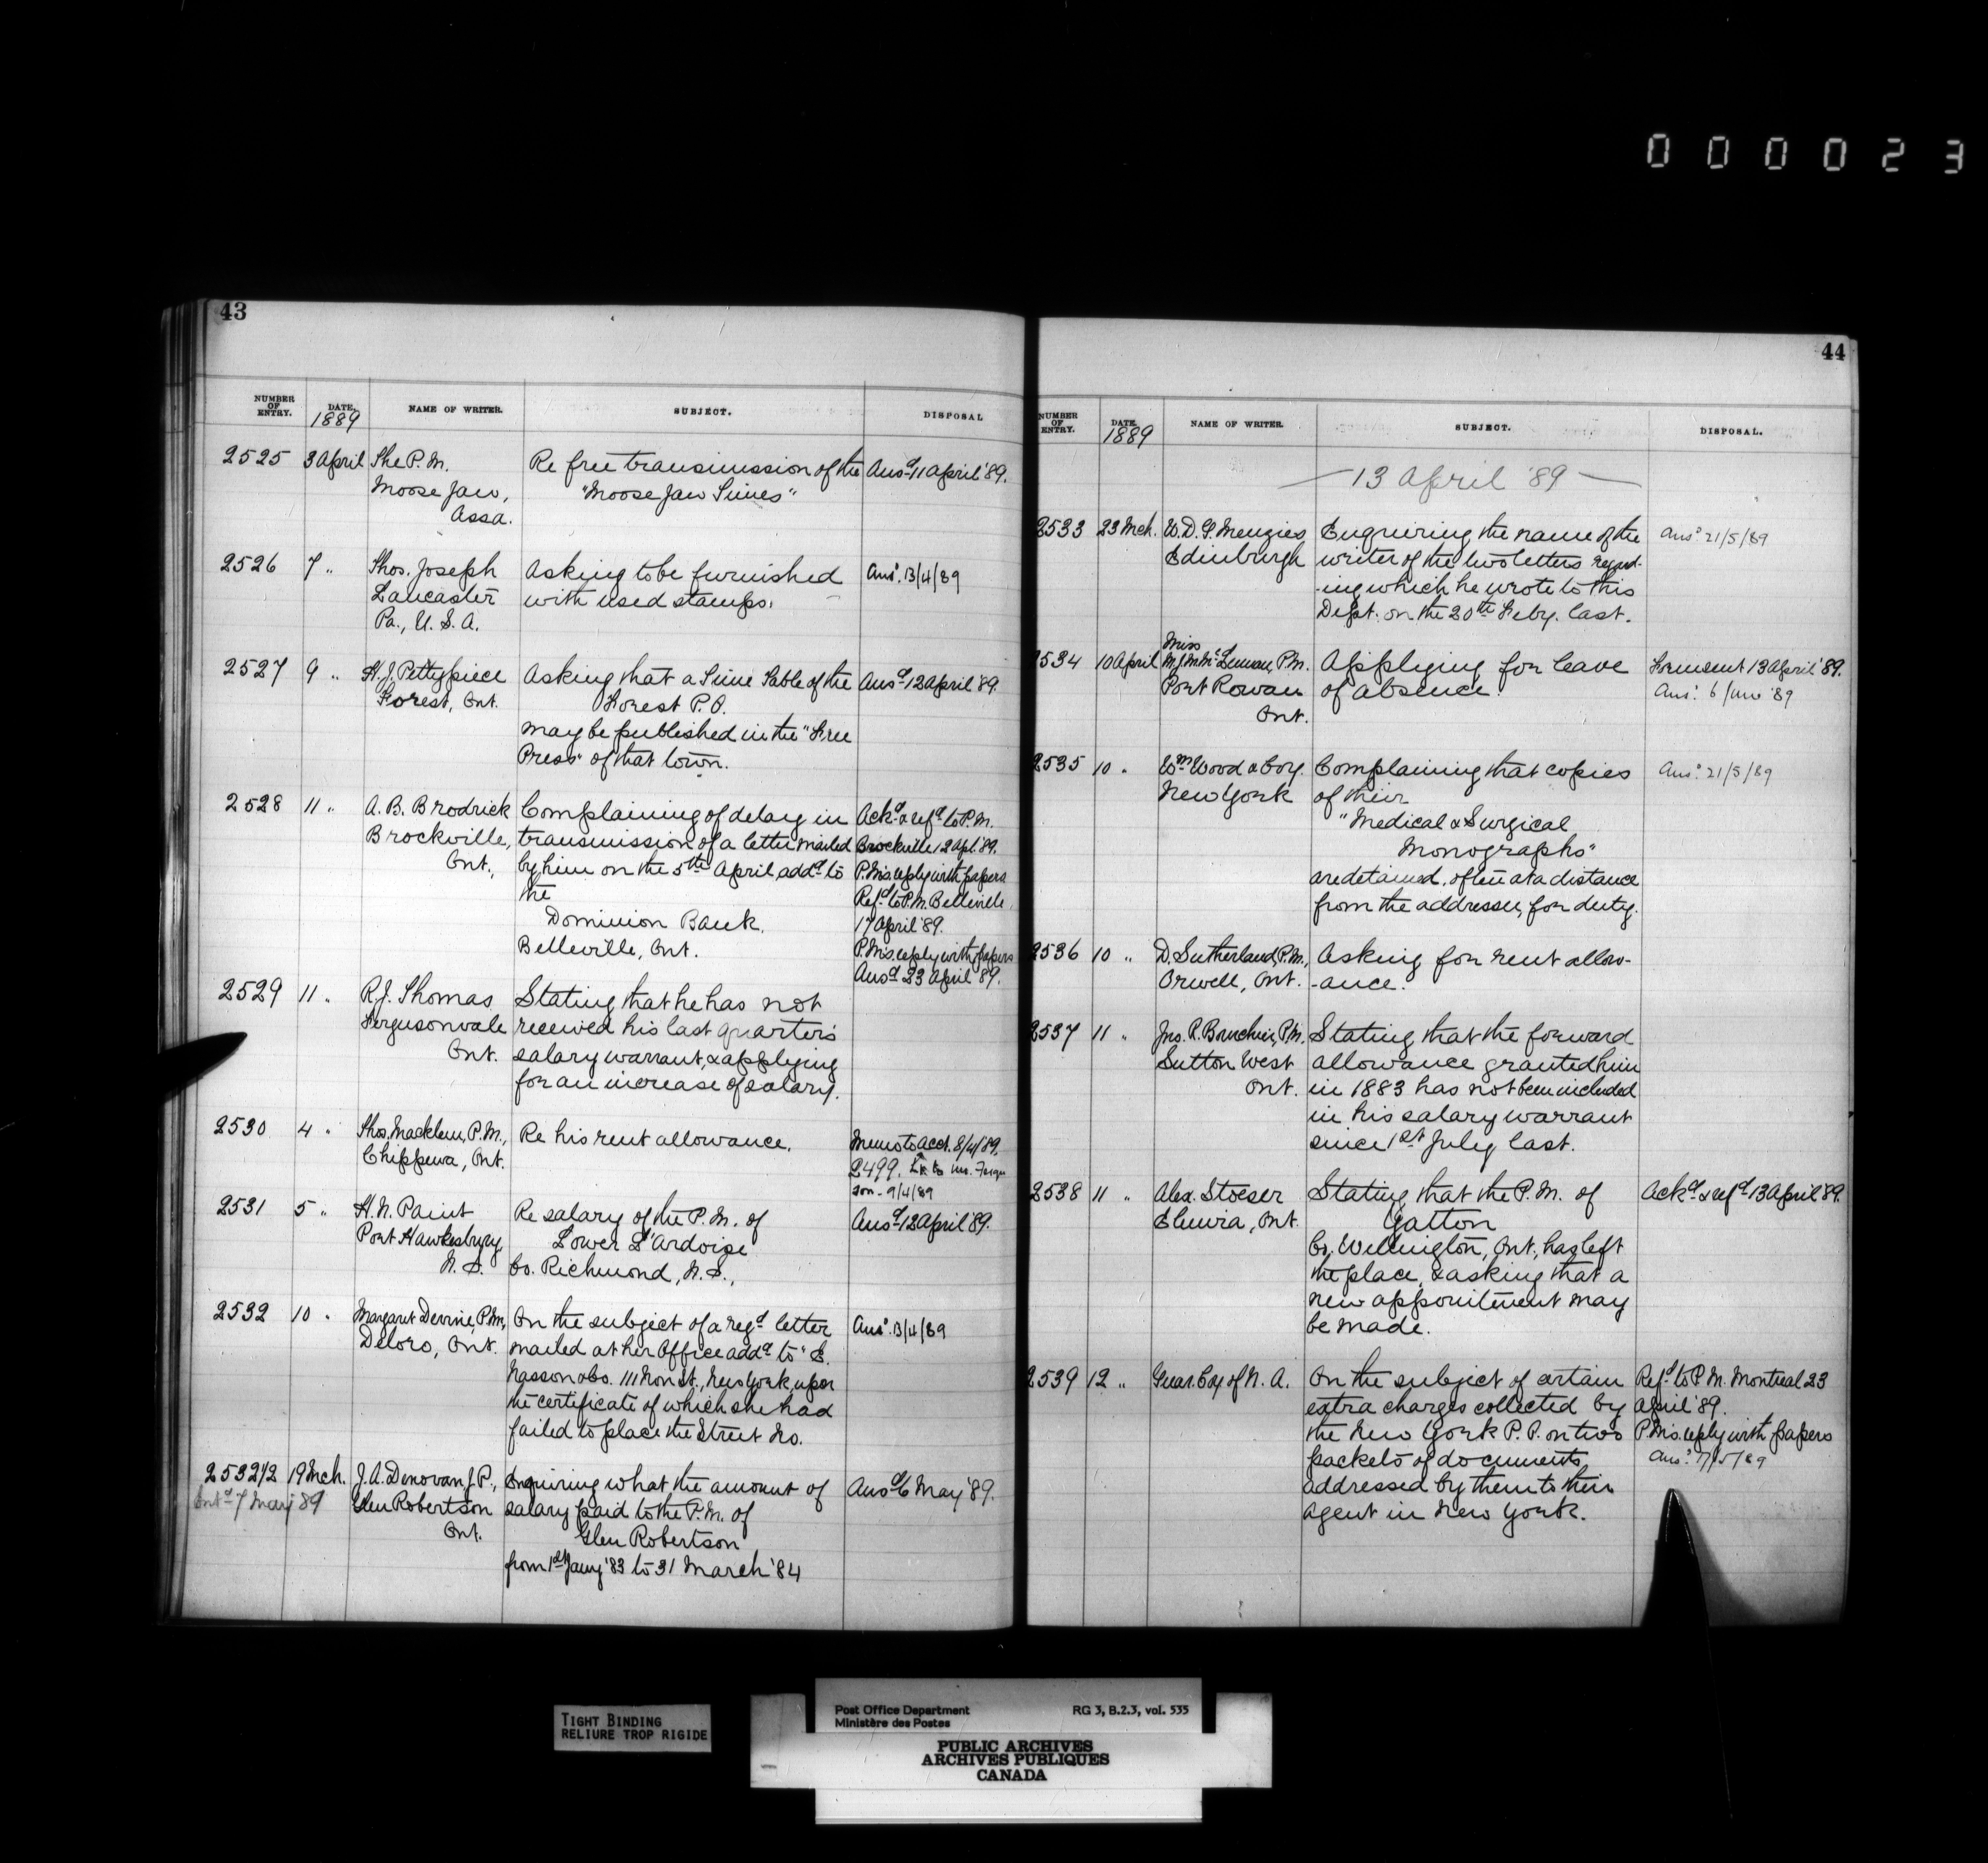 000023
43
NUMBER OF ENTRY. DATE. 1889 NAME OF WRITER. SUBJECT. DISPOSAL
2525 3 April The P.M. Re free transmission of the Ansd 11 April '89.
Moose Jaw, "Moose Jaw Times"
Assa.
2526 7 " Thos. Joseph Asking to be furnished Ansd. 13/4/89
Lancaster with used stamps.
Pa., U.S.A.
2527 9 " H.J. Pettypiece Asking that a Time Table of the Ansd 12 April '89.
Forest, Ont. Forest P.O.
may be published in the "Free
Press" of that town.
2528 11 " A.B. Brodrick Complaining of delay in Ackd & refd to P.M.
Brockville, transmission of a letter mailed Brockville 12 Apl. '89.
Ont., by him on the 5th April, addd to P.M's reply with papers
the Refd to P.M. Belleville
Dominion Bank. 17 April '89.
Belleville, Ont. P.M's reply with papers
Ansd 23 April '89.
2529 11 " R.J. Thomas Stating that he has not
Fergusonvale received his last quarter's
Ont. salary warrant, & applying
for an increase of salary.
2530 4 " Thos. Macklem, P.M., Re his rent allowance. Memo to Acct. 8/4/89.
Chippewa, Ont. 2499.
son - 9/4/89
2531 5 " H.N. Paint Re salary of the P.M. of Ansd 12 April '89.
Port Hawkesbury, Lower L'Ardoise
N.S. Co. Richmond, N.S.,
2532 10 " Margaret Devine, P.M., On the subject of a regd letter Ansd. 13/4/89
Deloro, Ont. mailed at her Office addd to "E.
New York, upon
the certificate of which she had
failed to place the Street No.
2532 1/2 19 Mch. J.A. Donovan J.P., Enquiring what the amount of Ansd 6 May '89.
Entd 7 May '89 Glen Robertson salary paid to the P.M. of
Ont. Glen Robertson
from 1st Jany '83 to 31 March '84
44
NUMBER OF ENTRY. DATE. 1889 NAME OF WRITER. SUBJECT. DISPOSAL.
— 13 April '89 —
2533 23 Mch. W.D.G. Menzies Enquiring the name of the Ansd 21/5/89
Edinburgh writer of the two letters regard-
-ing which he wrote to this
Dept. on the 20th Feby. last.
Miss
2534 10 April P.M. Applying for leave Form sent 13 April '89.
Port Rowan of absence. Ansd. 6 June '89
Ont.
2535 10 " Wm Wood & Coy. Complaining that copies Ansd. 21/5/89
New York of their
"Medical & Surgical
Monographs"
are detained, often at a distance
from the addressee, for duty.
2536 10 " D. Sutherland, P.M., Asking for rent allow-
Orwell, Ont. -ance.
2537 11 " Jno. R. Bourchier, P.M. Stating that the forward
Sutton West allowance granted him
Ont. in 1883 has not been included
in his salary warrant
since 1st July last.
2538 11 " Alex. Stoeser Stating that the P.M. of Ackd & refd 13 April '89.
Elmira, Ont. Yatton
Co. Wellington, Ont., has left
the place, & asking that a
new appointment may
be made.
2539 12 " Guar. Coy of N.A. On the subject of certain Refd to P.M. Montreal 23
extra charges collected by April '89.
the New York P.O. on two P.M's reply with papers
packets of documents Ansd. 7/5/89
addressed by them to their
agent in New York.
TIGHT BINDING
RELIURE TROP RIGIDE
Post Office Department RG 3, B.2.3, vol. 535
Ministère des Postes
PUBLIC ARCHIVES
ARCHIVES PUBLIQUES
CANADA